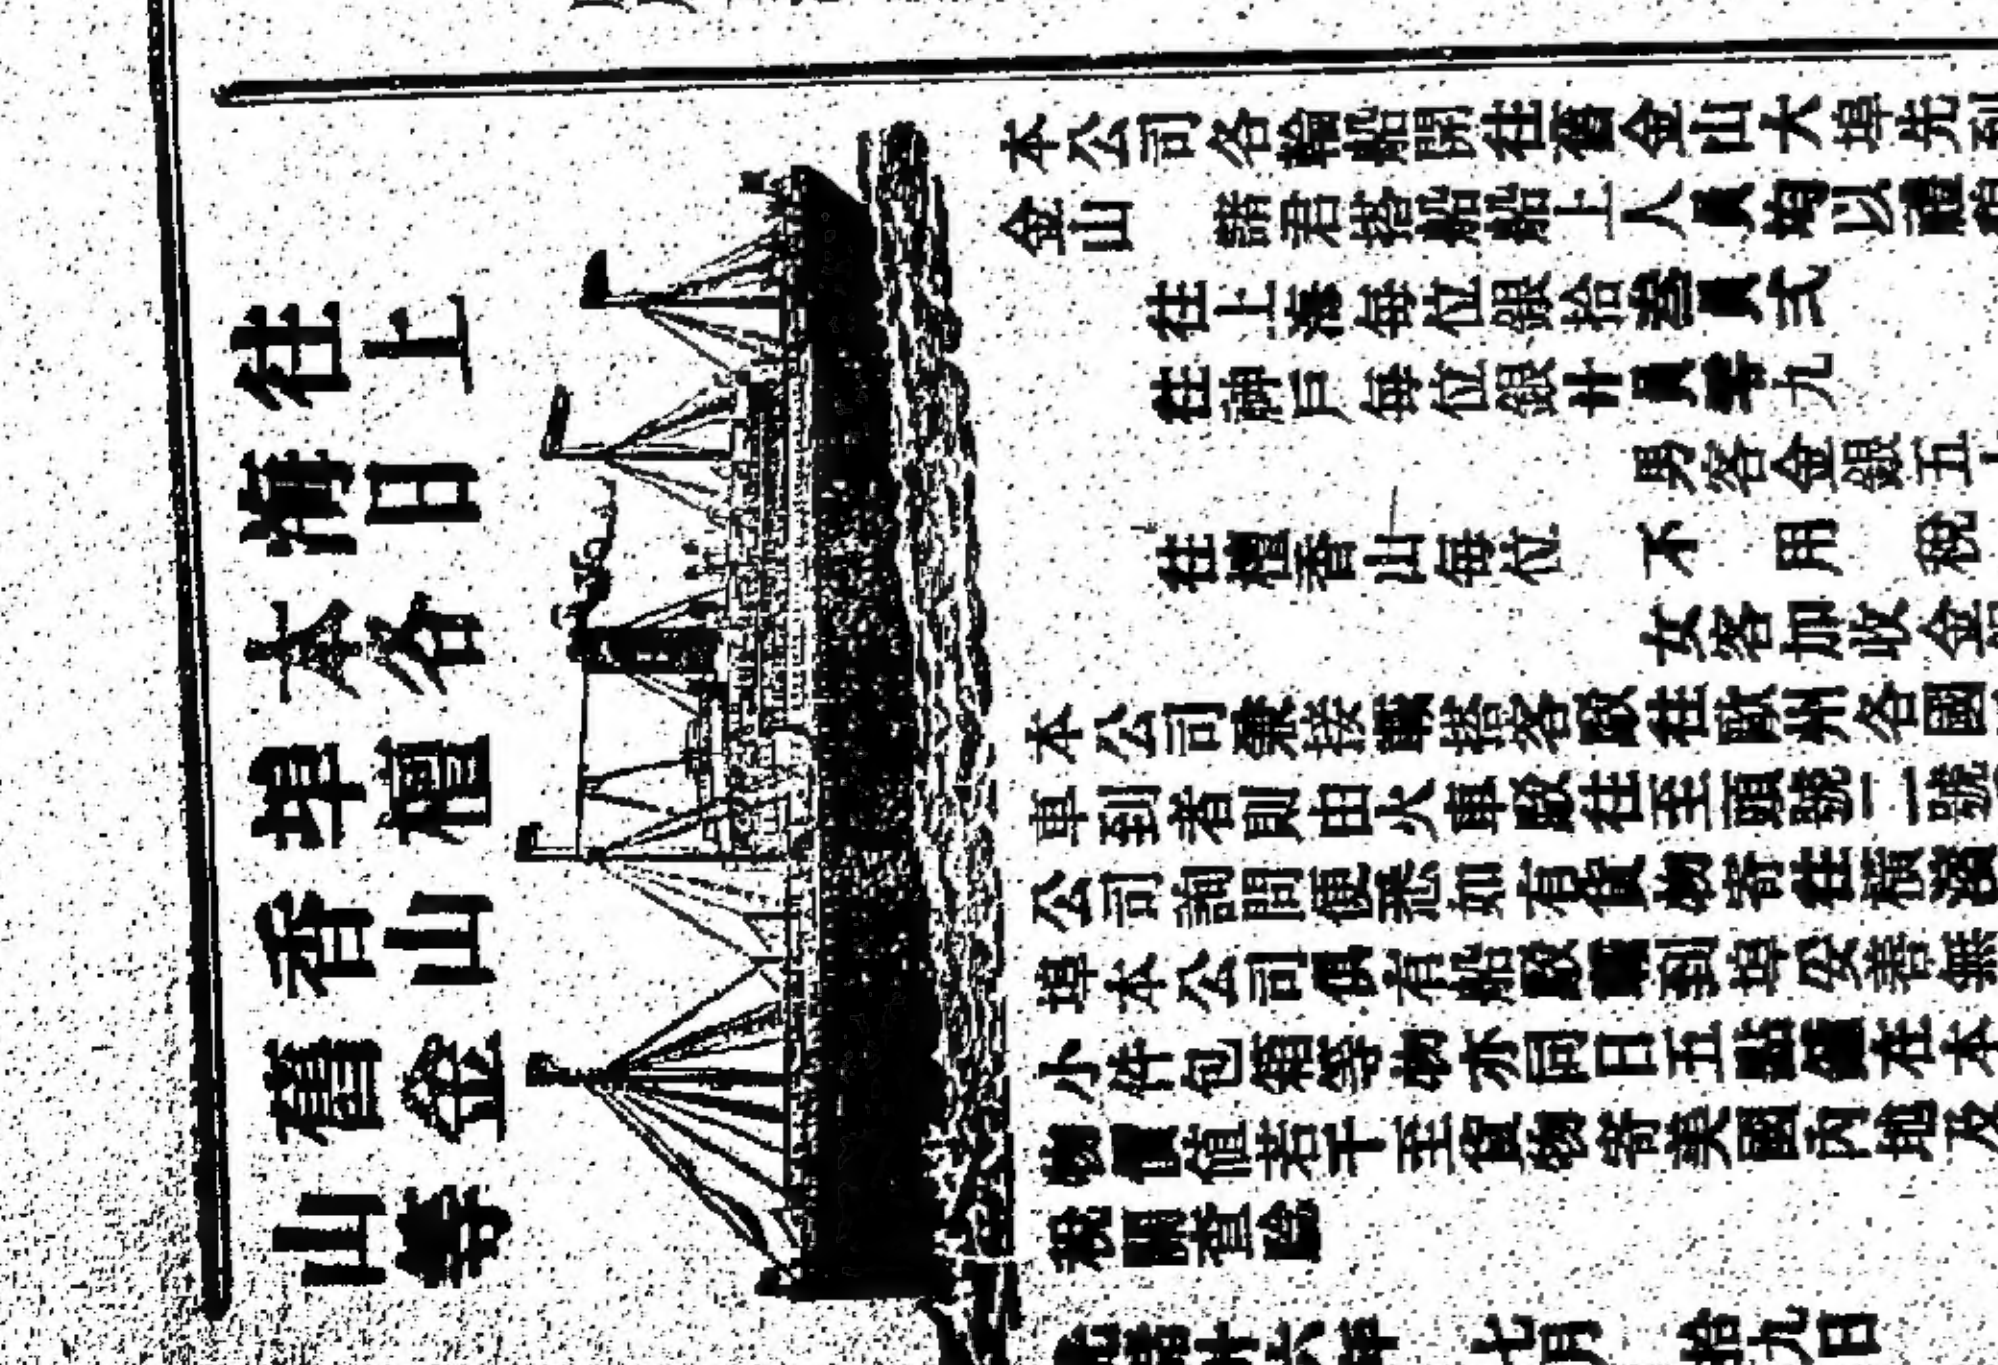 往上
海日
本各
埠檀
香山
舊金
山等
本公司各輪船開往舊金山大埠先到
金山 諸君搭船船上人員均以禮
往上海每位銀拾叁員弍
往神戶每位銀廿員零九
男客金銀五
往檀香山每位 不用稅
女客加收金
本公司兼接載搭客啟往歐州各國
車到者則由火車啟往至頭號二號
公司詢問便悉如有貨物寄往
埠本公司俱有船啟載到埠妥善無
小件包箱等物亦同日五點鐘在本
物價值若干至貨物寄美國內地及
稅關查驗
光緒廿六年 七月 拾九日